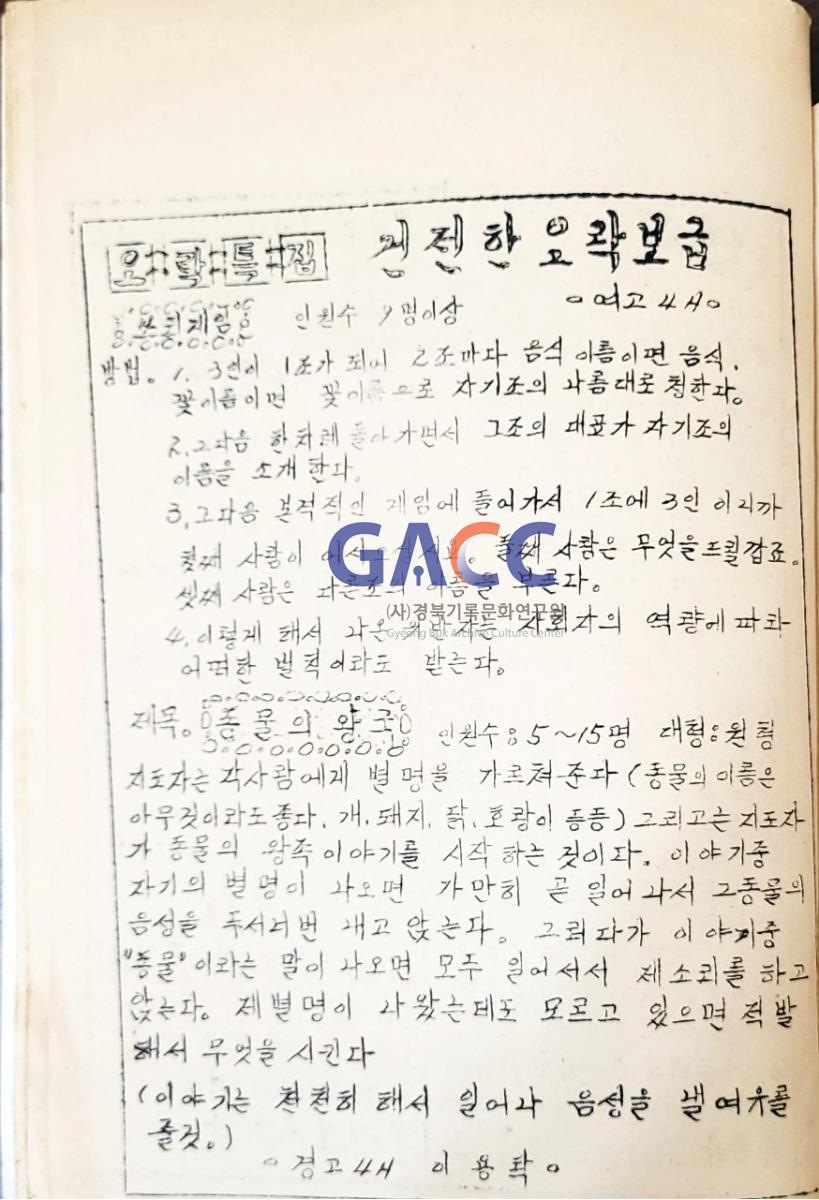 오락특집 건전한 오락보급
여고 4H
게임 인원수 9명이상
방법. 1. 3인이 1조가 되어 2조마다 음식 이름이면 음식,
꽃이름이면 꽃이름으로 자기조의 나름대로 칭한다.
2. 그다음 한차례 돌아가면서 그조의 대표가 자기조의
이름을 소개 한다.
3. 그다음 본격적인 게임에 들어가서 1조에 3인 이니까
첫째 사람이 어서오십시요. 둘째 사람은 무엇을드릴깝죠.
GACC
셋째 사람은 다른조의 이름을 부른다.
(사)경북기록문화연구원
4. 이렇게 해서 나온 위반자는 사회자의 역량에 따라
Gyeong Buk Archive Culture Center
어떠한 벌칙이라도 받는다.
제목. 동물의 왕국 인원수: 5~15명 대형: 원형
지도자는 각사람에게 별명을 가르쳐준다 (동물의 이름은
아무것이라도 좋다. 개, 돼지, 닭, 호랑이 등등) 그리고는 지도자
가 동물의 왕족 이야기를 시작 하는 것이다. 이야기중
자기의 별명이 나오면 가만히 곧 일어나서 그동물의
음성을 두서너번 내고 앉는다. 그러다가 이야기중
"동물" 이라는 말이 나오면 모두 일어서서 제소리를 하고
앉는다. 제별명이 나왔는데도 모르고 있으면 적발
해서 무엇을 시킨다
(이야기는 천천히 해서 일어나 음성을 낼여유를
줄것.)
경고4H 이용락